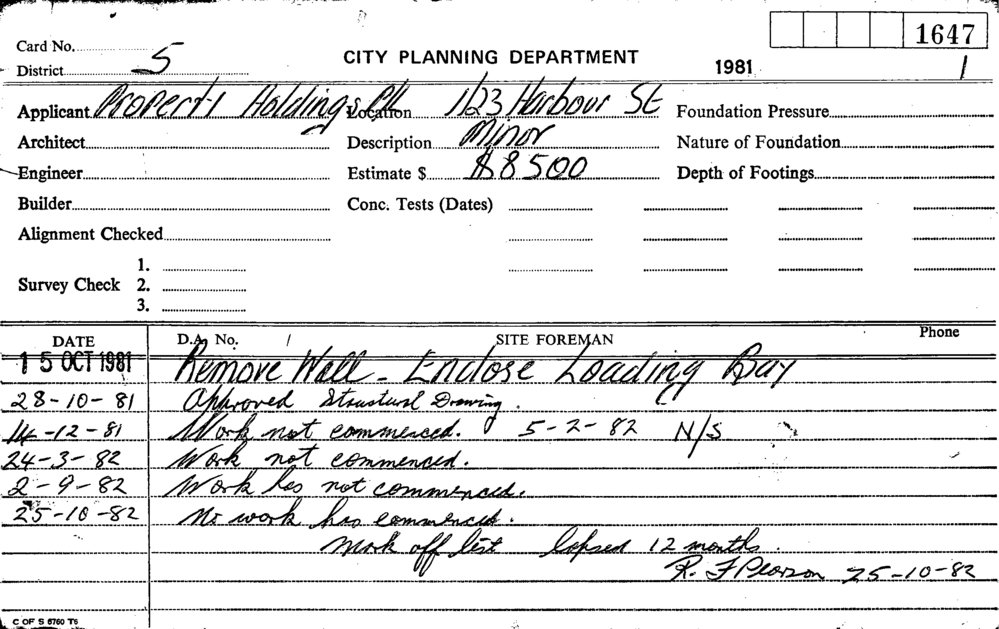 1647
Card No. CITY PLANNING DEPARTMENT 1981 1
District 5
Applicant Property Holdings P/L Location 123 Harbour St Foundation Pressure
Architect Description Minor Nature of Foundation
Engineer Estimate $ $8500 Depth of Footings
Builder Conc. Tests (Dates)
Alignment Checked
1.
Survey Check 2.
3.
DATE D.A. No. SITE FOREMAN Phone
15 OCT 1981 Remove Wall - Enclose Loading Bay
28-10-81 Approved Structural Drawing.
14-12-81 Work not commenced. 5-2-82 N/S
24-3-82 Work not commenced.
2-9-82 Work has not commenced.
25-10-82 No work has commenced.
Mark off list lapsed 12 months.
R. F Pearson 25-10-82
C OF S 6760 T6